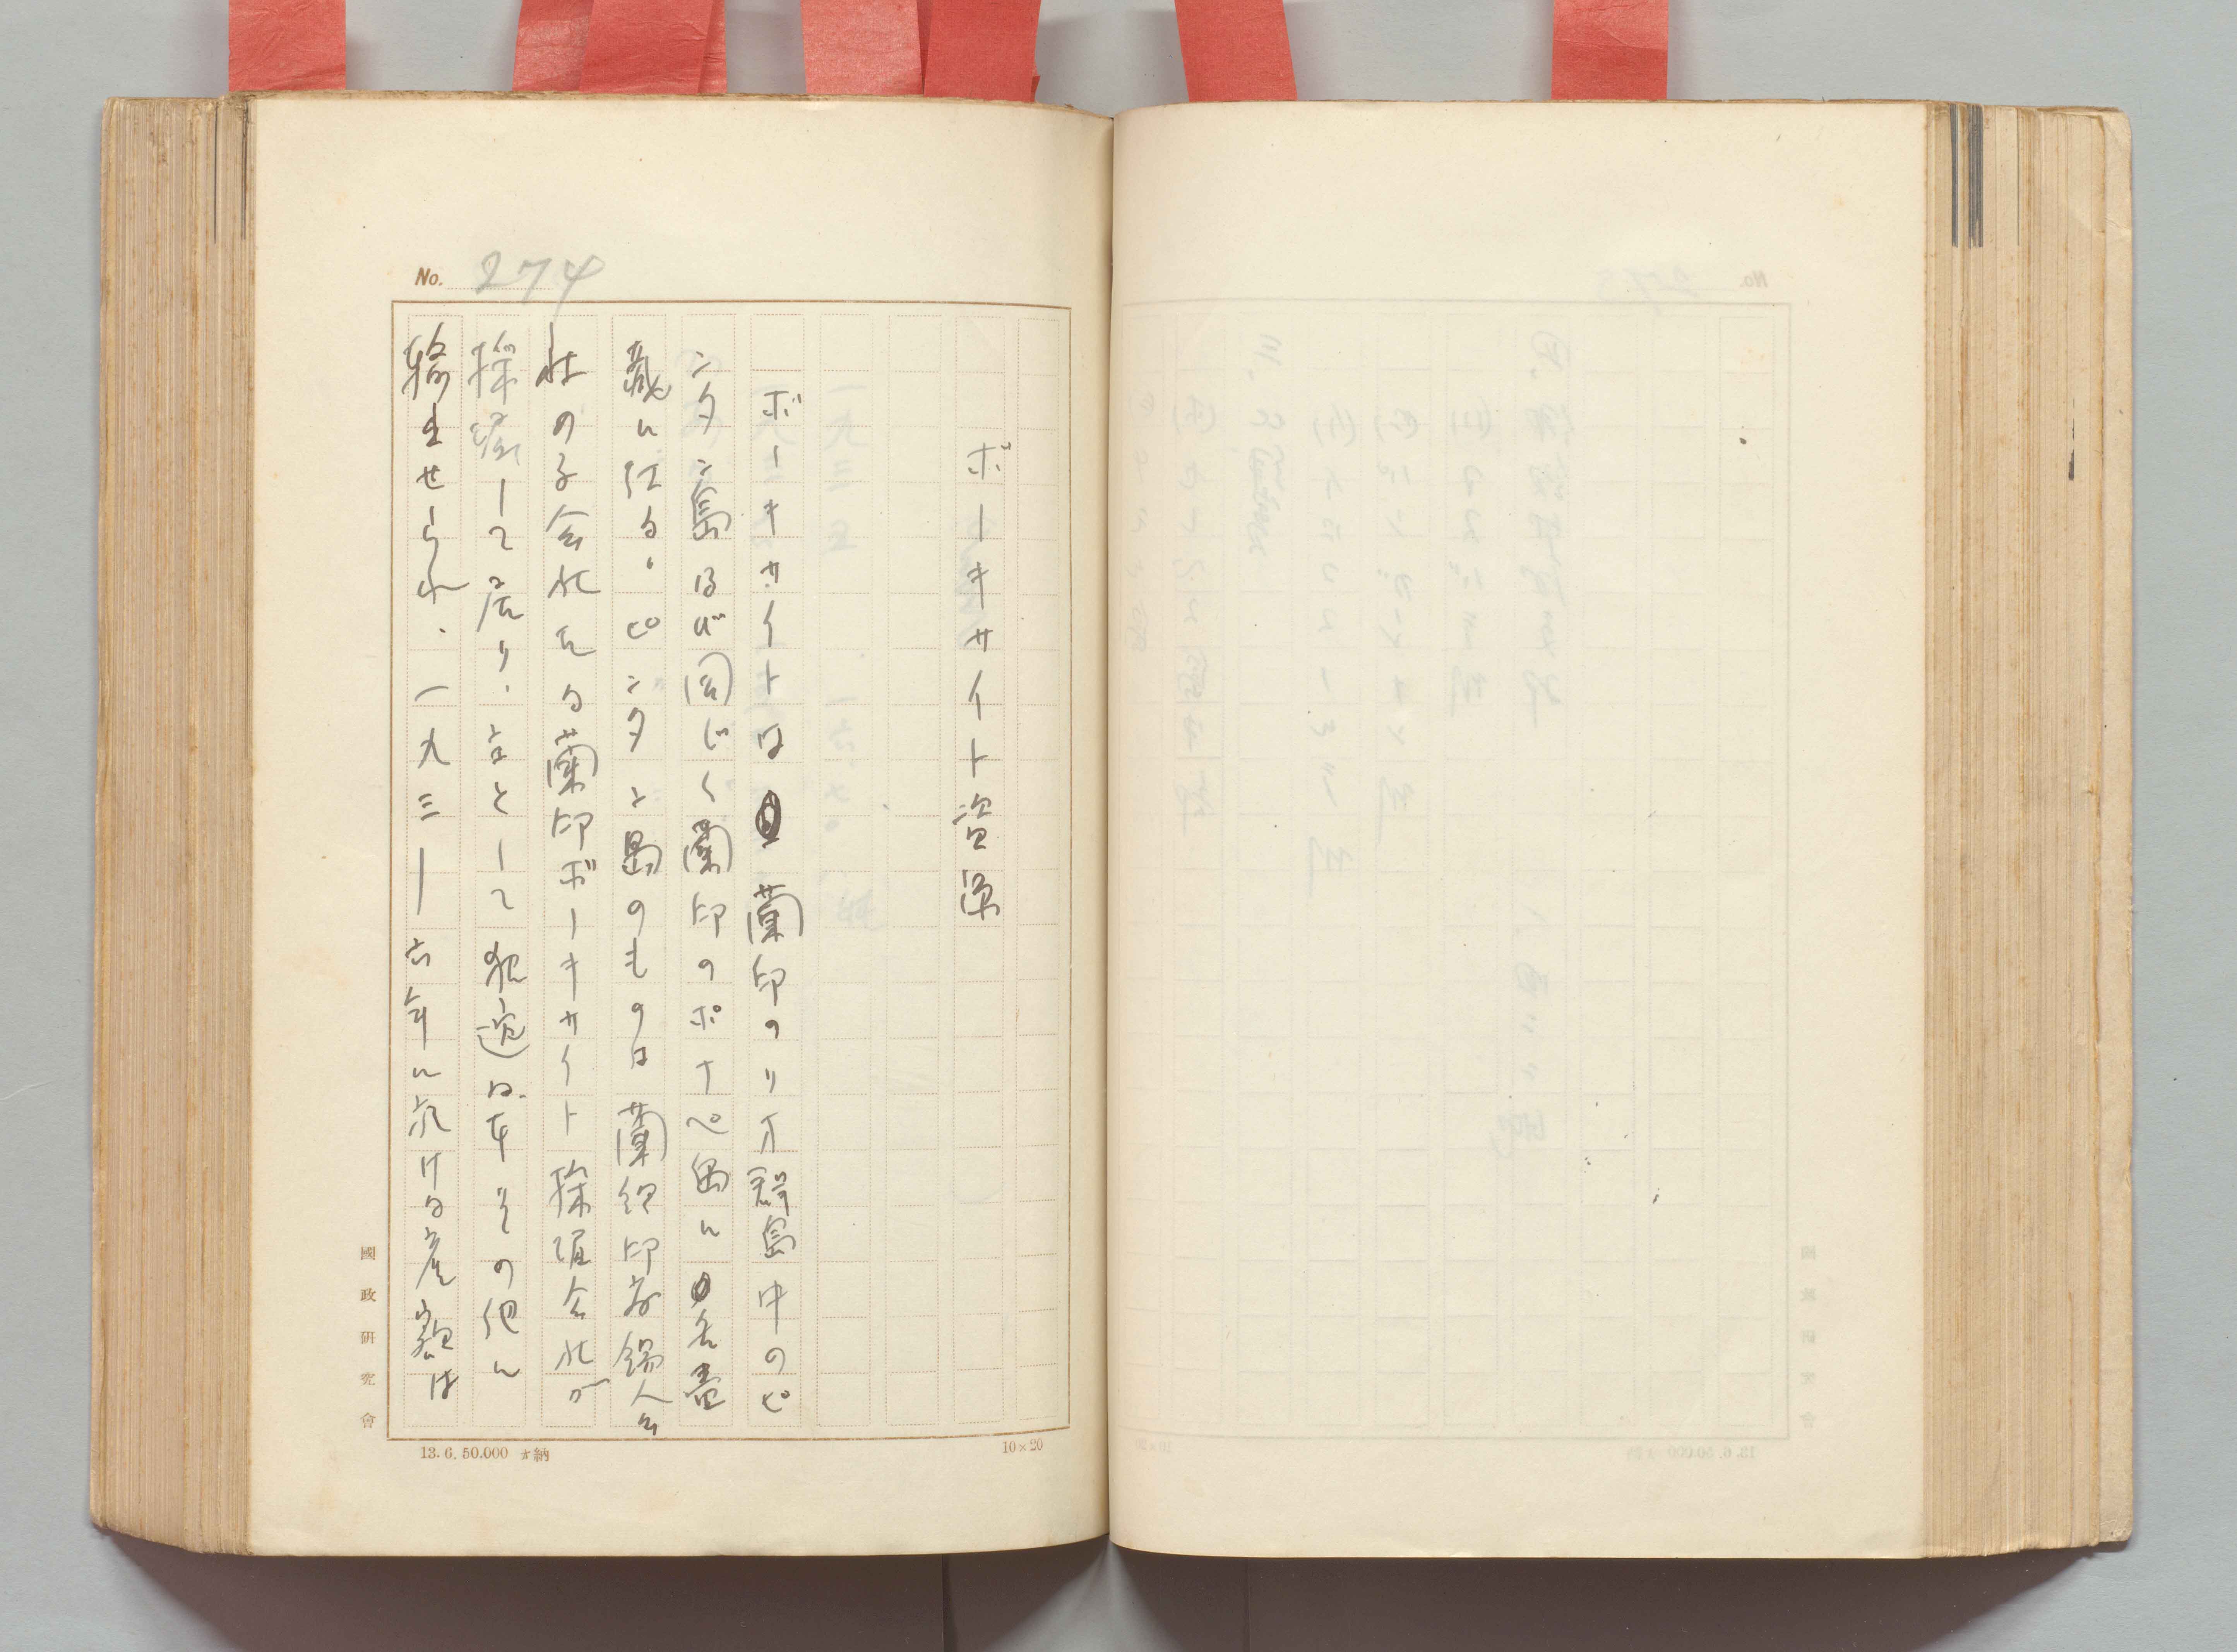 No. 274
ボーキサイト資源
ボーキサイトは蘭印のリオ群島中のビ
ンタン島及び同じく蘭印のボナペ島に無盡
蔵に在る。ビンタン島のものは蘭領印度錫会
社の子会社たる蘭印ボーキサイト採掘会社が
採掘して居り、主として独逸、日本その他に
輸出せられ、一九三一―六年に於ける産額は
國政研究會
13.6.50.000 納
10×20